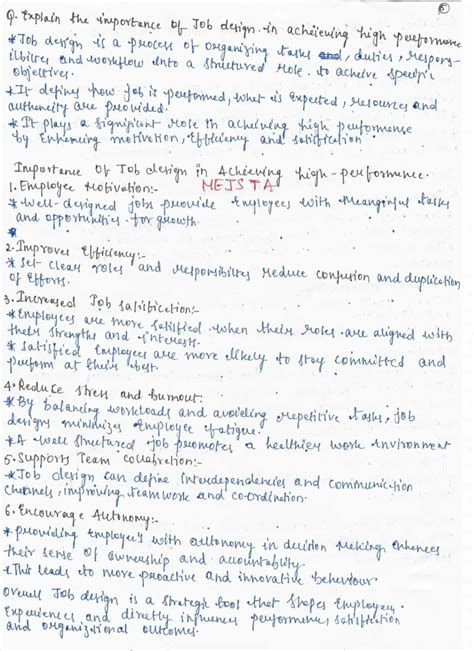 Q. Explain the importance of Job design in acheieving high performance
* Job design is a process of organizing tasks and, duties, respons-
ibilites and workflow into a structured role. to acheive specific
objectives.
* It defines how job is performed, what is expected, resources and
authority are provided.
* It plays a significant role in achieving high performance
by Enhancing motivation, Efficiency and satisfication
Importance Of Job design in Achieving high-performance.
MEJSTA
1. Employee Motivation:-
* Well-designed jobs provide Employees with Meaningful tasks
and opportunities for growth.
*
2. Improves Efficiency:-
* Set clear roles and responsibilites reduce confusion and duplication
of Efforts.
3. Increased Job satisfication:-
* Employees are more satisfied when their roles are aligned with
their strengths and interests.
* Satisfied Employees are more likely to stay committed and
perform at their best.
4. Reduce stress and burnout:-
* By balancing workloads and avoiding repetitive tasks, job
designs minimizes Employee fatigue.
* A well structured job promotes a healthier work invironment
5. Supports Team collabration:-
* Job design can define interdependencies and communication
channels, improving teamwork and co-ordination.
6. Encourage Autonomy:-
* providing employee's with autonomy in decision making Enhances
their sense of ownership and accountability.
* This leads to more proactive and innovative behaviour
Overall Job design is a strategic tool that shapes Employee
Experiences and directly influences performance, satisfication
and organizational outcomes.